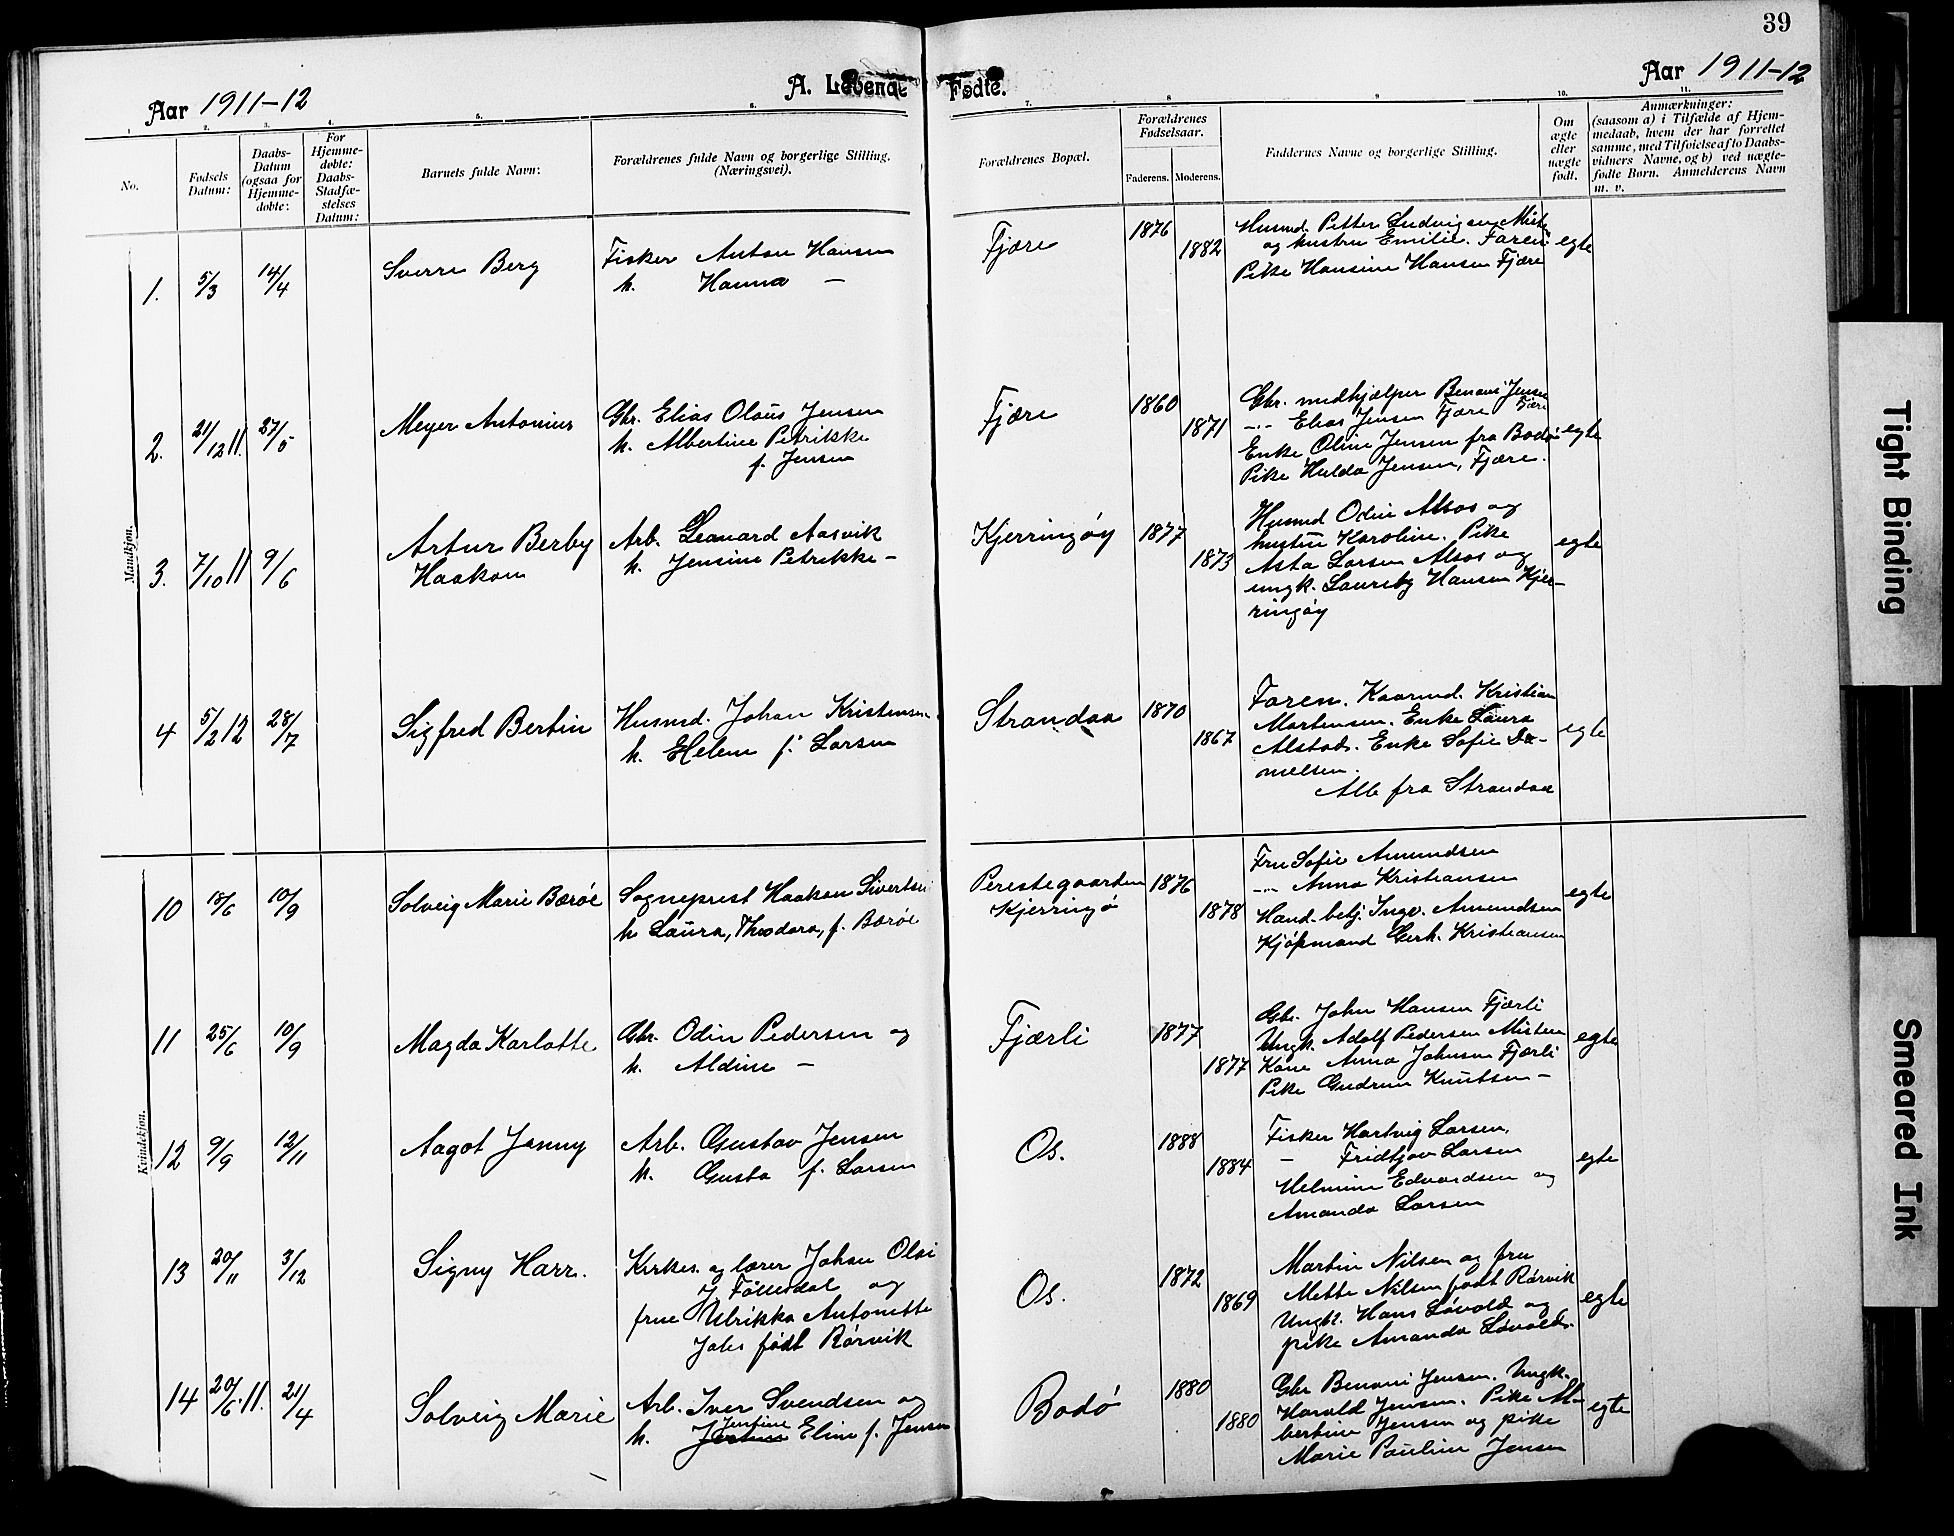 39
Aar 1911-12
A. Levende Fødte.
Aar 1911-12
1.
2.
3.
4.
5.
6.
7.
8
9
10.
11.
No.
Fødsels
Datum:
Daabs-
Datum
(ogsaa for
Hjemme-
døbte:
For
Hjemme-
døbte:
Daabs-
Stadfæ-
stelses
Datum:
Barnets fulde Navn:
Forældrenes fulde Navn og borgerlige Stilling.
(Næringsvei).
Forældrenes Bopæl.
Forældrenes
Fødselsaar.
Faderens.
Moderens.
Faddernes Navne og borgerlige Stilling.
Om
ægte
eller
uægte
født.
Anmærkninger:
(saasom a) i Tilfælde af Hjem-
medaab, hvem der har forrettet
samme, med Tilføielse af to Daabs-
vidners Navne, og b) ved uægte-
fødte Børn. Anmelderens Navn
m. v.
Mandkjøn.
1.
5/3
14/4
Sverre Berg
Fisker Anton Hansen
h. Hanna -
Fjære
1876
1882
Husmd. Petter Ludvigsen Miste
og hustru Emilie. Faren
Pike Hansine Hansen Fjære
egte
2.
21/12 11.
27/5
Meyer Antonius
Gbr. Elias Olaus Jensen
h. Albertine Petrikke
f. Jensen
Fjære
1860
1871
Gbr. medhjælper Benoni Jensen
-"- Elias Jensen Fjære Fjære
Enke Oline Jensen fra Bodø
Pike Hulda Jensen, Fjære.
egte
3.
7/10 11
9/6
Artur Berby
Haakon
Arb. Leonard Aasvik
h. Jensine Petrikke -
Kjerringøy
1877
1873
Husmd Odin Alsos og
hustru Karoline. Pike
Asta Larsen Alsos og
ungk. Lauritz Hansen Kjer-
ringøy
egte
4
5/2 12
28/7
Sigfred Bertin
Husmd. Johan Kristensen
h. Helene f. Larsen
Strandaa
1870
1867
Faren. Kaarmd. Kristian
Mortensen. Enke Laura
Alstad. Enke Sofie Da-
nielsen.
Alle fra Strandaa
egte
Kvindekjøn.
10
18/6
10/9
Solveig Marie Barøe
Sogneprest Haakon Sivertsen
h. Laura, Theodora, f. Barøe
Perestegaarden
Kjerringø
1876
1878
Fru Sofie Amundsen
-"- Anna Kristiansen
Hand. betj. Ingv. Amundsen
Kjøpmand Gerh. Kristiansen
egte
11
25/6
10/9
Magda Karlotte
Gbr. Odin Pedersen og
h. Aldine -
Fjærli
1877
1877
Gbr. John Hansen Fjærli
Ungk. Adolf Pedersen Misten
Kone Anna Johnsen Fjærli
Pike Gudrun Knutsen -
egte
12
9/9
12/11
Aagot Janny
Arb. Gustav Jensen
h. Gusta f. Larsen
Os.
1888
1884
Fisker Hartvig Larsen,
- Fridtjov Larsen
Helmine Edvardsen og
Amanda Larsen
egte
13
20/11
3/12
Signy Harr.
Kirkes. og lærer Johan Olai
J. Føllesdal og
frue Ulrikka Antonette
Jals født Rørvik
Os.
1872
1869
Martin Nilsen og fru
Mette Nilsen født Rørvik
Ungk. Hans Løvold og
pike Amanda Løvold.
egte
14
20/6. 11.
21/4
Solveig Marie
Arb. Iver Svendsen og
Jentine
h. Eline f. Jensen
Bodø
1880
1880
Gbr Benoni Jensen. Ungk.
Harald Jensen. Pike Al-
bertine Jensen og pike
Marie Pauline Jensen
egte
Tight Binding
Smeared Ink